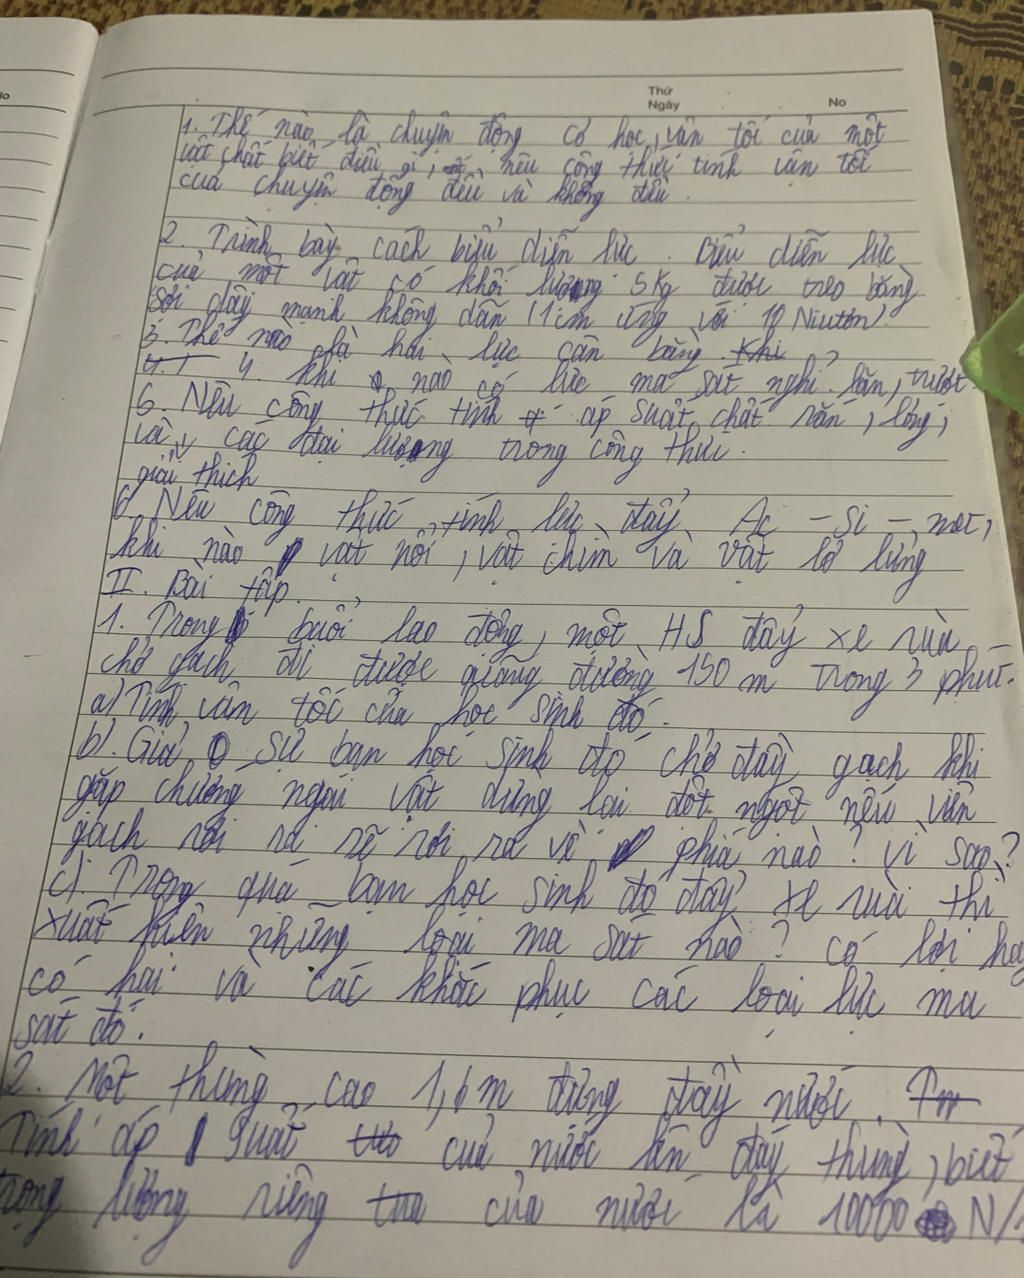 Thứ
Ngày
No
1. Thế nào là chuyện động cơ học, vân tốc của một
vật chất biết điều gì, nêu công thức tính vận tốc
của chuyện động đều và không đều.
2. Trình bày cách biểu diễn lực. Biểu diễn lực
của một vật có khối lượng 5kg được treo bằng
sợi dây mảnh không dãn (1cm ứng với 10 Niuton).
3. Thế nào là hai lực cân bằng. ?
4. khi nào có lực ma sát nghỉ. lăn, trượt.
5. Nêu công thức tính áp suất chất rắn, lỏng,
và các đại lượng trong công thức.
giải thích
6 Nêu công thức tính lực đẩy Ac - Si - mét,
khi nào vật nổi, vật chìm và vật lơ lửng
II. Bài tập.
1. Trong buổi lao động, một HS đẩy xe rùa
chở gạch đi được quãng đường 150 m trong 3 phút.
a) Tính vân tốc của học sinh đó.
b). Giả sử bạn học sinh đó chở đầy gạch khi
gặp chướng ngại vật dừng lại đột ngột nếu viên
gạch rơi ra sẽ rơi ra về phía nào? vì sao?
c). Trong quá bạn học sinh đó đẩy xe rùa thì
xuất hiện những loại ma sát nào? có lợi hay
có hại và các khắc phục các loại lực ma
sát đó.
2. Một thùng cao 1,6m đựng đầy nước.
Tính áp suất của nước lên đáy thùng, biết
trọng lượng riêng của nước là 10000 N/